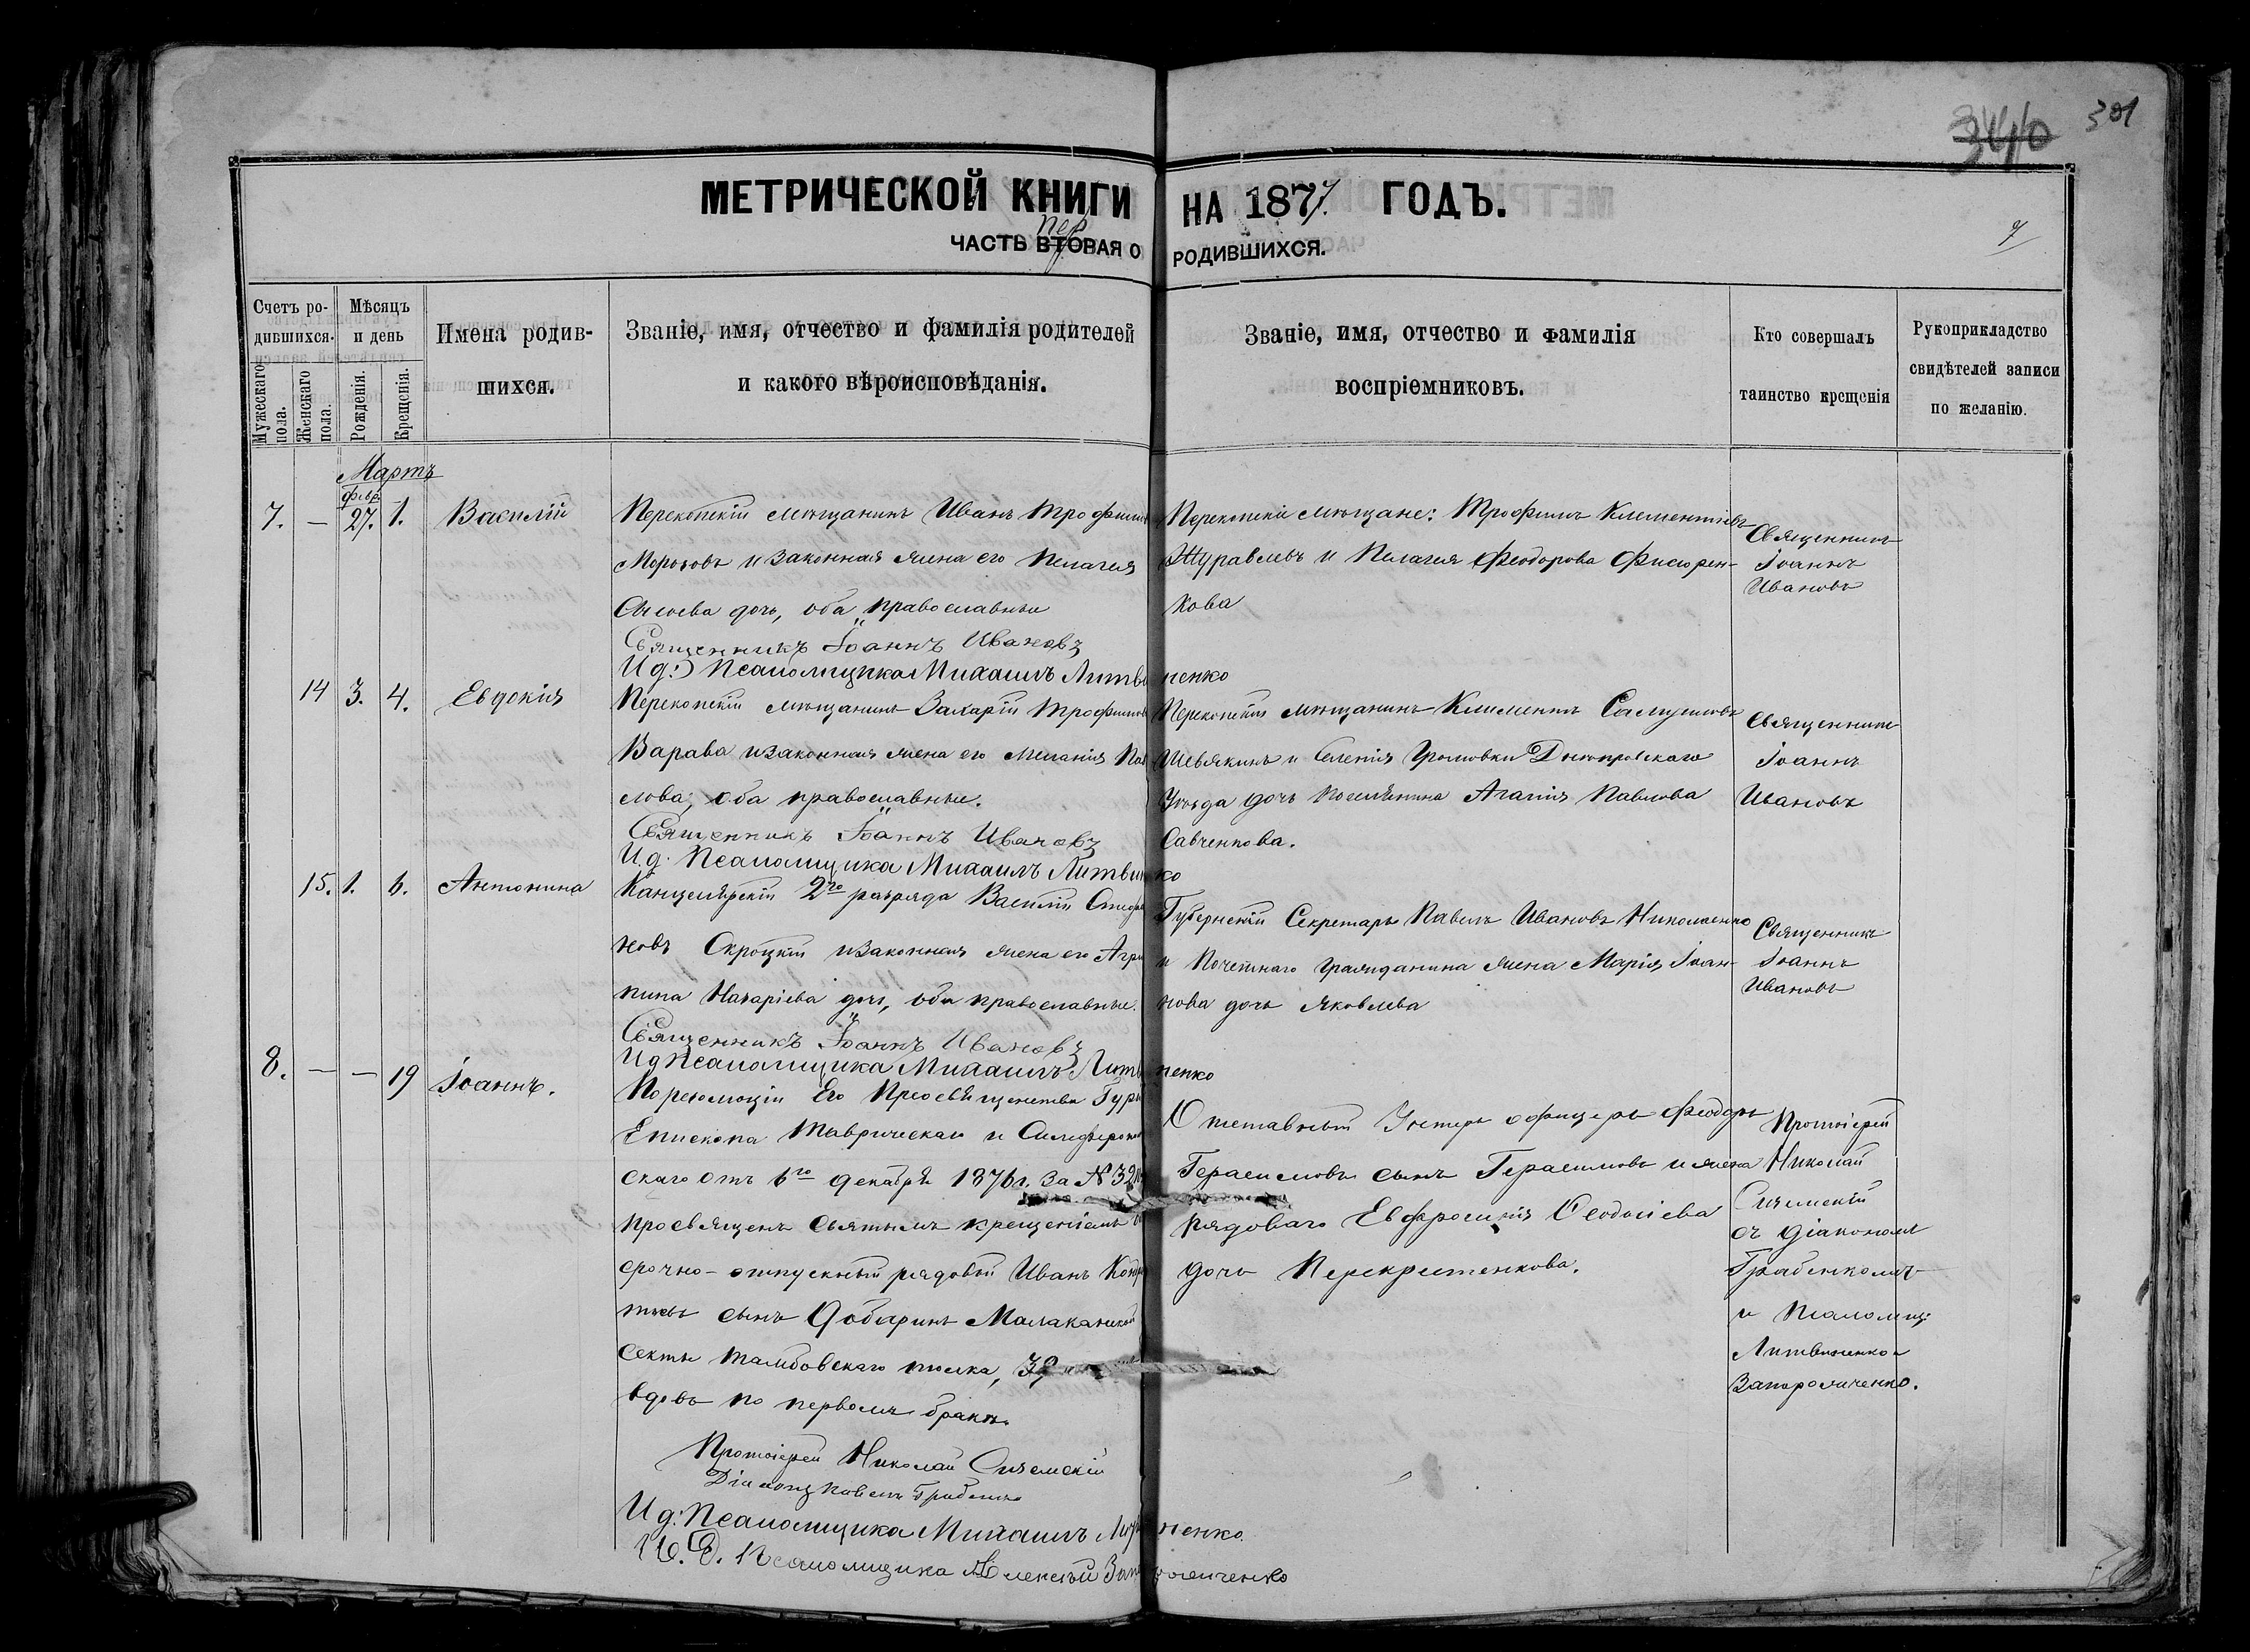 301
340
МЕТРИЧЕСКОЙ КНИГИ НА 1877. ГОДЪ.
пер
ЧАСТЬ ВТОРАЯ О РОДИВШИХСЯ.
7
Счетъ ро-
дившихся.
Мужескаго
пола.
Женскаго
пола.
Мѣсяцъ
и день
Рожденія.
Крещенія.
Имена родив-
шихся.
Званіе, имя, отчество и фамилія родителей
и какого вѣроисповѣданія.
Званіе, имя, отчество и фамилія
воспріемниковъ.
Кто совершалъ
таинство крещенія
Рукоприкладство
свидѣтелей записи
по желанію.
Мартъ
февр
7. — 27. 1. Василій
Перекопскій мѣщанинъ Иванъ Трофимов
Морозовъ и законная жена его Пелагея
дочь, оба православные
Священникъ Іоаннъ Ивановъ
И.д. Псаломщика Михаилъ Литвиненко
Перекопскіе мѣщане: Трофимъ Климентіевъ
Журавлевъ и Пелагея Феодорова
кова
Священникъ
Іоаннъ
Ивановъ
14 3. 4. Евдокія
Перекопскій мѣщанинъ Захарій Трофимов
Варава и законная жена его Меланія Пав
лова, оба православные.
Священникъ Іоаннъ Ивановъ
И.д. Псаломщика Михаилъ Литвиненко
Перекопскій мѣщанинъ Климентъ
Шевякинъ и селенія Громовки Днѣпровскаго
Уѣзда дочь поселянина Агапія Павлова
Савченкова.
Священникъ
Іоаннъ
Ивановъ
15. 1. 6. Антонина
Канцелярскій 2го разряда Василій
новъ Скроцкій и законная жена его Агри
пина Назаріева дочь, оба православные.
Священникъ Іоаннъ Ивановъ
И.д. Псаломщика Михаилъ Литвиненко
Губернскій Секретарь Павелъ Ивановъ Николаенко
и Почетнаго гражданина жена Марія Іоан-
нова дочь Яковлева
Священникъ
Іоаннъ
Ивановъ
8. — — 19 Іоаннъ.
По резолюціи Его Преосвященства Гурія
Епископа Таврическаго и Симферополь
скаго отъ 6го декабря 1876 г. за №
просвященъ Святымъ крещеніемъ
срочно-отпускный рядовой Иванъ
сынъ Молоканской
секты Тамбовскаго толка,
вдовъ по первомъ бракѣ.
Протоіерей Николай Сиземскій
Діаконъ Павелъ Грабенко
И.д. Псаломщика Михаилъ Литвиненко.
И.Д. Псаломщика Алексѣй Запорожченко
Отставной Унтеръ офицеръ Феодоръ
Герасимовъ сынъ Герасимовъ и жена
рядоваго Евфросинія Феодосіева
дочь Перекрестенкова.
Протоіерей
Николай
Сиземскій
съ діакономъ
Грабенкомъ
и псаломщ.
Литвиненко и
Запорожченко.